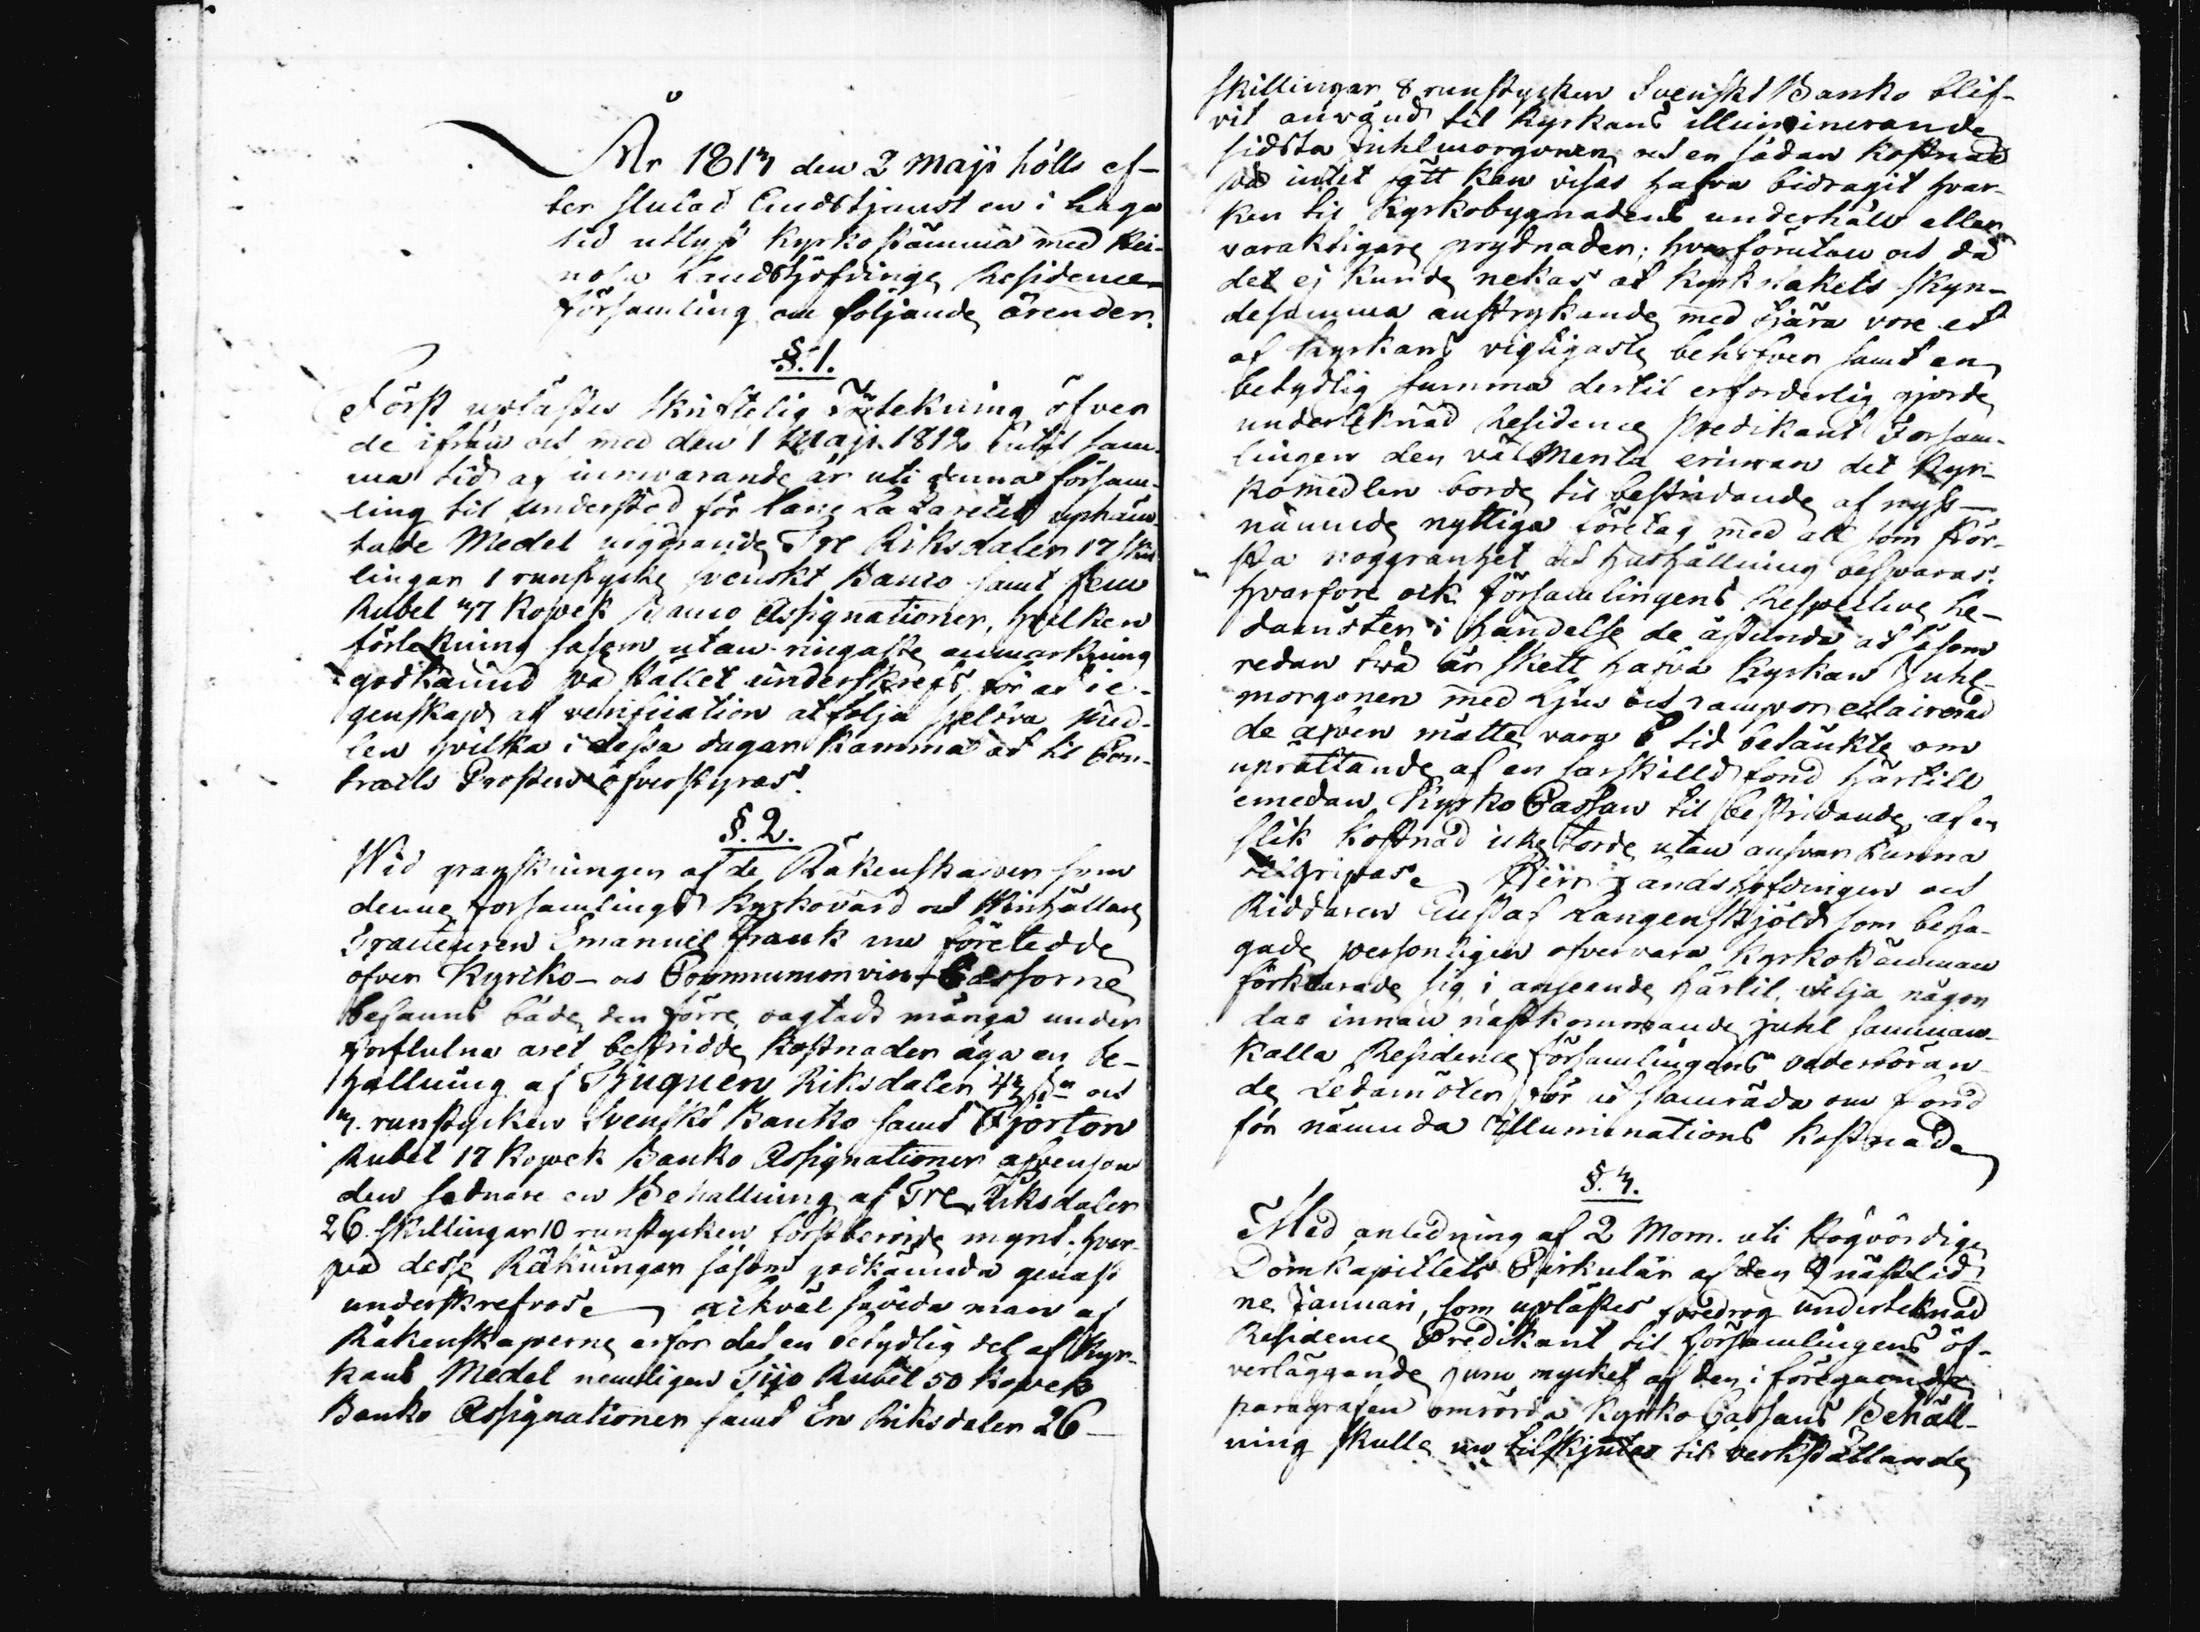 År 1813 den 2 Maji hölls ef-
ter slutad Gudstjenst en i laga
tid utlyst Kyrkostämma med Hei-
nola Landshöfdinge Residence
församling om följande ärender.
§. 1.
Först uplästes skriftelig Förtekning öfver
de ifrån och med den 1 Maji 1812 intil sam-
ma tid af innevarande år uti denna försam-
ling til understöd för Lazarettet uphäm-
tade Medel utgörande Tre Riksdaler 17 skil-
lingar 1 runstycke svenskt Banco samt Fem
Rubel 37 Kopek Banco Assignationer, hvilken
förtekning såsom utan ringaste anmärkning
godkännd på stället underskrefs för at i e-
genskap af verification åtfölja sjelfva Med-
len hvilka i dessa dagar komma at til Con-
tracts Prosten öfverstyras.
§. 2.
Wid granskningen af de Räkenskaper som
denne församlings Kyrkovärd och Winhållare
Tracteuren Emanuel Frank nu företedde
öfver Kyrko- och Communionvins-Cassorne
befanns både den förre, oagtadt många under
förflutna året bestridde kostnader äga en be-
hållning af Tjuguen Riksdaler 43 sk. och
3. runstycken Svenskt Banko samt Fjorton
Rubel 17 Kopek Banko Assignationer äfvensom
den sednare en Behållning af Tre Riksdaler
26 skillingar 10 runstycken förstberörde mynt, hvar-
på desse Räkningar såsom godkännda genast
underskrefvos. Likväl såvida man af
Räkenskaperne erfor det en betydlig del af Kyr-
kans Medel nemligen Tijo Rubel 50 Kopek
Banko Assignationer samt En Riksdaler 26
skillingar 8 runstycken Svenskt Banko blif-
vit använd til Kyrkans illuminerande
sidsta Juhlmorgonen och en sådan kostnad
på intet sätt kan visas hafva bidragit hvar-
ken til Kyrkobygnadens underhåll eller
varaktigare prydnader; hvarförutan och då
det ej kunde nekas at Kyrktakets skyn-
desamma anstrykande med tjära vore et
af Kyrkans vigtigaste behofver samt en
betydlig summa dertil erforderlig gjorde
undertecknad Residence Predikant Försam-
lingen den välmenta erinran det Kyr-
komedlen borde til bestridande af nyss-
nämnde nyttiga företag med all som stör-
sta noggranhet och hushållning besparas:
hvarföre ock församlingens Respective Le-
damöter i händelse de åstunda at såsom
redan två år skett hafva Kyrkan Juhl-
morgonen med ljus och lampor eclairerad
de äfven måtte vara i tid betänkte om
uprättande af en särskilld fond härtill
emedan Kyrko Cassan til bestridande af en
slik kostnad icke torde utan ansvar kunna
tilgripas. Herr Landshöfdingen och
Riddaren Gustaf Langenskjöld som beha-
gade personligen öfvervara Kyrkostämman
förklarade sig, i anseende härtil, vilja någon
dag innan nästkommande juhl samman-
kalla Residence församlingens vederböran-
de Ledamöter för at samråda om fond
för nämnda illuminations kostnade
§. 3.
Med anledning af 2 Mom. uti Högvördige
Domkapitlets Cirkulär af den 9 nästled-
ne Januari, som uplästes föredrog undertecknad
Residence Predikant til församlingens öf-
verläggande huru mycket af den i föregående
paragrafen omrörda Kyrko Cassans Behåll-
ning skulle nu tilskjutas til verkställande